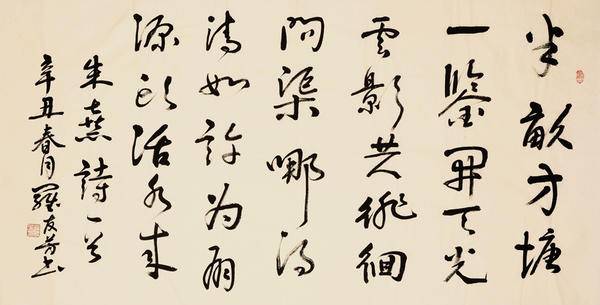 半畝方塘
一鑒開天光
雲影共徘徊
問渠哪得
清如許為有
源頭活水來
朱熹詩一首
辛丑春月羅友芳书